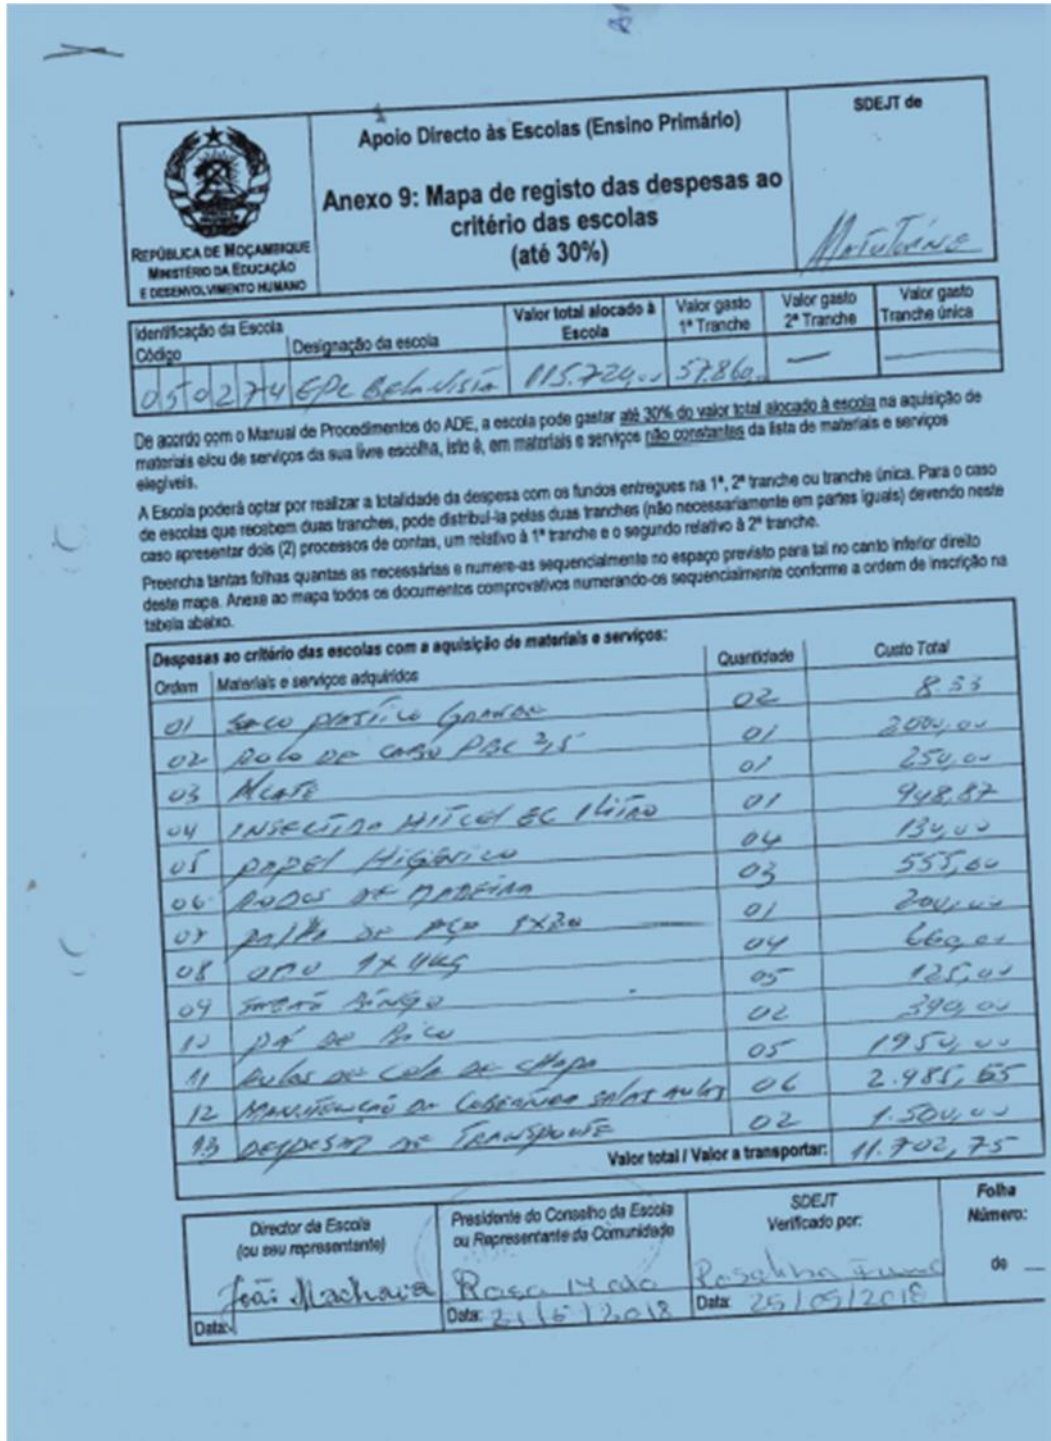 SDEJT de
Apoio Directo às Escolas (Ensino Primário)
Anexo 9: Mapa de registo das despesas ao
critério das escolas
(até 30%)
REPÚBLICA DE MOÇAMBIQUE
MINISTÉRIO DA EDUCAÇÃO
E DESENVOLVIMENTO HUMANO
Identificação da Escola
Código
Designação da escola
Valor total alocado à
Escola
Valor gasto
1ª Tranche
Valor gasto
2ª Tranche
Valor gasto
Tranche única
050274 EPC Bela Vista 115.720,00 57.860,
De acordo com o Manual de Procedimentos do ADE, a escola pode gastar até 30% do valor total alocado à escola na aquisição de
materiais e/ou de serviços da sua livre escolha, isto é, em materiais e serviços não constantes da lista de materiais e serviços
elegíveis.
A Escola poderá optar por realizar a totalidade da despesa com os fundos entregues na 1ª, 2ª tranche ou tranche única. Para o caso
de escolas que recebem duas tranches, pode distribuí-la pelas duas tranches (não necessariamente em partes iguais) devendo neste
caso apresentar dois (2) processos de contas, um relativo à 1ª tranche e o segundo relativo à 2ª tranche.
Preencha tantas folhas quantas as necessárias e numere-as sequencialmente no espaço previsto para tal no canto inferior direito
deste mapa. Anexe ao mapa todos os documentos comprovativos numerando-os sequencialmente conforme a ordem de inscrição na
tabela abaixo.
Despesas ao critério das escolas com a aquisição de materiais e serviços:
Ordem Materiais e serviços adquiridos Quantidade Custo Total
01 Saco plastico Grande 02 8.33
02 Rolo de cabo 2,5 01 2000,00
03 Alicate 01 250,00
04 EC 1 litro 01 948,87
05 Papel Higiénico 04 130,00
06 Rodos de madeira 03 555,00
07 de aço 01 200,00
08 omo 04 660,00
09 05 125,00
10 Pá de Bico 02 390,00
11 de cola de chapa 05 1950,00
12 Manutenção da Cobertura salas aulas 06 2.985,55
13 Despesas de Transporte 02 1.500,00
Valor total / Valor a transportar: 11.702,75
Director da Escola
(ou seu representante)
João Machava
Data:
Presidente do Conselho da Escola
ou Representante da Comunidade
Rosa
Data: 21/5/2018
SDEJT
Verificado por:
Data: 25/05/2018
Folha
Número:
de